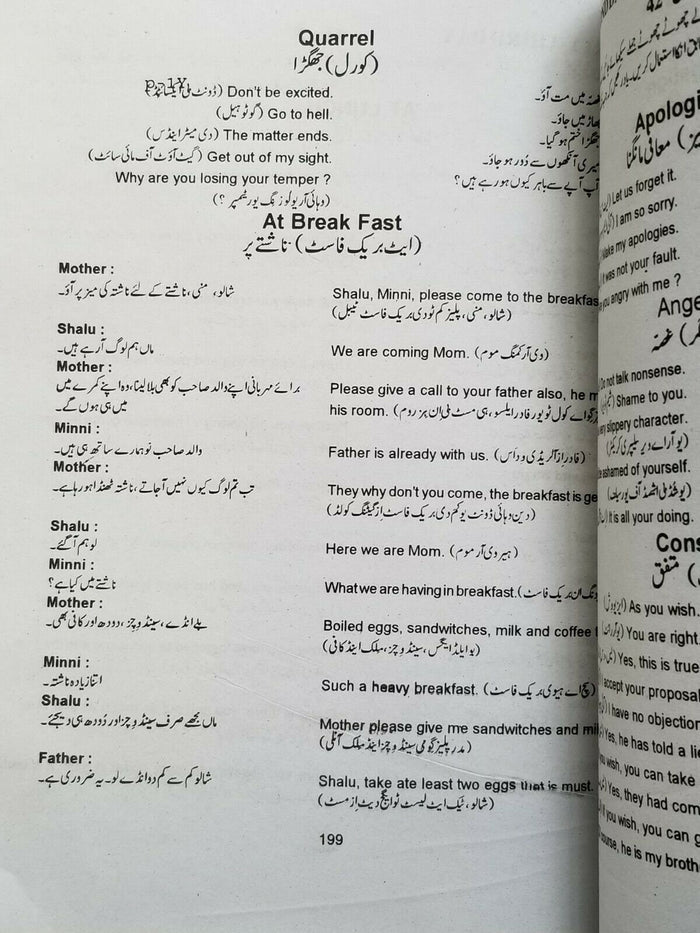 Quarrel
(کورل) جھگڑا
Don't be excited. غصّہ میں مت آؤ۔
(گوٹو ہیل) Go to hell. بھاڑ میں جاؤ۔
(دی میٹر اینڈس) The matter ends. جھگڑا ختم ہو گیا۔
(گیٹ آؤٹ آف مائی سائٹ) Get out of my sight. میری آنکھوں سے دُور ہو جاؤ۔
Why are you losing your temper ? آپ آپے سے باہر کیوں ہو رہے ہیں؟
(وہائی آر یو لوزنگ یور ٹیمپر ؟)
At Break Fast
(ایٹ بریک فاسٹ) ناشتے پر
Mother :
شالو، منی، ناشتے کے لئے ناشتہ کی میز پر آؤ۔ Shalu, Minni, please come to the breakfas
(شالو، منی، پلیز کم ٹو دی بریک فاسٹ ٹیبل)
Shalu :
ماں ہم لوگ آرہے ہیں۔ We are coming Mom. (وی آر کمنگ موم)
Mother :
برائے مہربانی اپنے والد صاحب کو بھی بلا لینا، وہ اپنے کمرے میں Please give a call to your father also, he m
میں ہی ہوں گے۔ his room.
Minni :
والد صاحب تو ہمارے ساتھ ہی ہیں۔ Father is already with us. (فادر از آلریڈی ود اَس)
Mother :
تب تم لوگ کیوں نہیں آجاتے، ناشتہ ٹھنڈا ہو رہا ہے۔ They why don't you come, the breakfast is ge
(دین وہائی ڈونٹ یو کم دی بریک فاسٹ از گیٹنگ کولڈ)
Shalu :
لو ہم آگئے۔ Here we are Mom. (ہیر وی آر موم)
Minni :
ناشتے میں کیا ہے؟ What we are having in breakfast.
Mother :
بلے انڈے، سینڈوِچز، دودھ اور کافی بھی۔ Boiled eggs, sandwitches, milk and coffee t
(بوایلڈ ایگس، سینڈوِچز، ملک اینڈ کافی)
Minni :
اتنا زیادہ ناشتہ۔ Such a heavy breakfast. (سچ اے ہیوی بریک فاسٹ)
Shalu :
ماں مجھے صرف سینڈوِچز اور دُودھ ہی دیجئے۔ Mother please give me sandwitches and mil
(مدر پلیز گو می سینڈوِچز اینڈ ملک آنلی)
Father :
شالو کم سے کم دو انڈے لو۔ یہ ضروری ہے۔ Shalu, take ate least two eggs that is must.
(شالو، ٹیک ایٹ لیسٹ ٹو ایگج دیٹ از مسٹ)
199
42
Apologi
معافی مانگنا
Let us forget it.
I am so sorry.
ake my apologies.
t was not your fault.
you angry with me ?
Ange
غصّہ
Do not talk nonsense.
Shame to you.
ery slippery character.
(یو آر اے ویر سلیپری کریکٹر)
e ashamed of yourself.
It is all your doing.
Cons
متفق
As you wish.
You are right.
Yes, this is true
accept your proposal
I have no objection
Yes, he has told a lie
you wish, you can take
Yes, they had com
If you wish, you can g
course, he is my broth